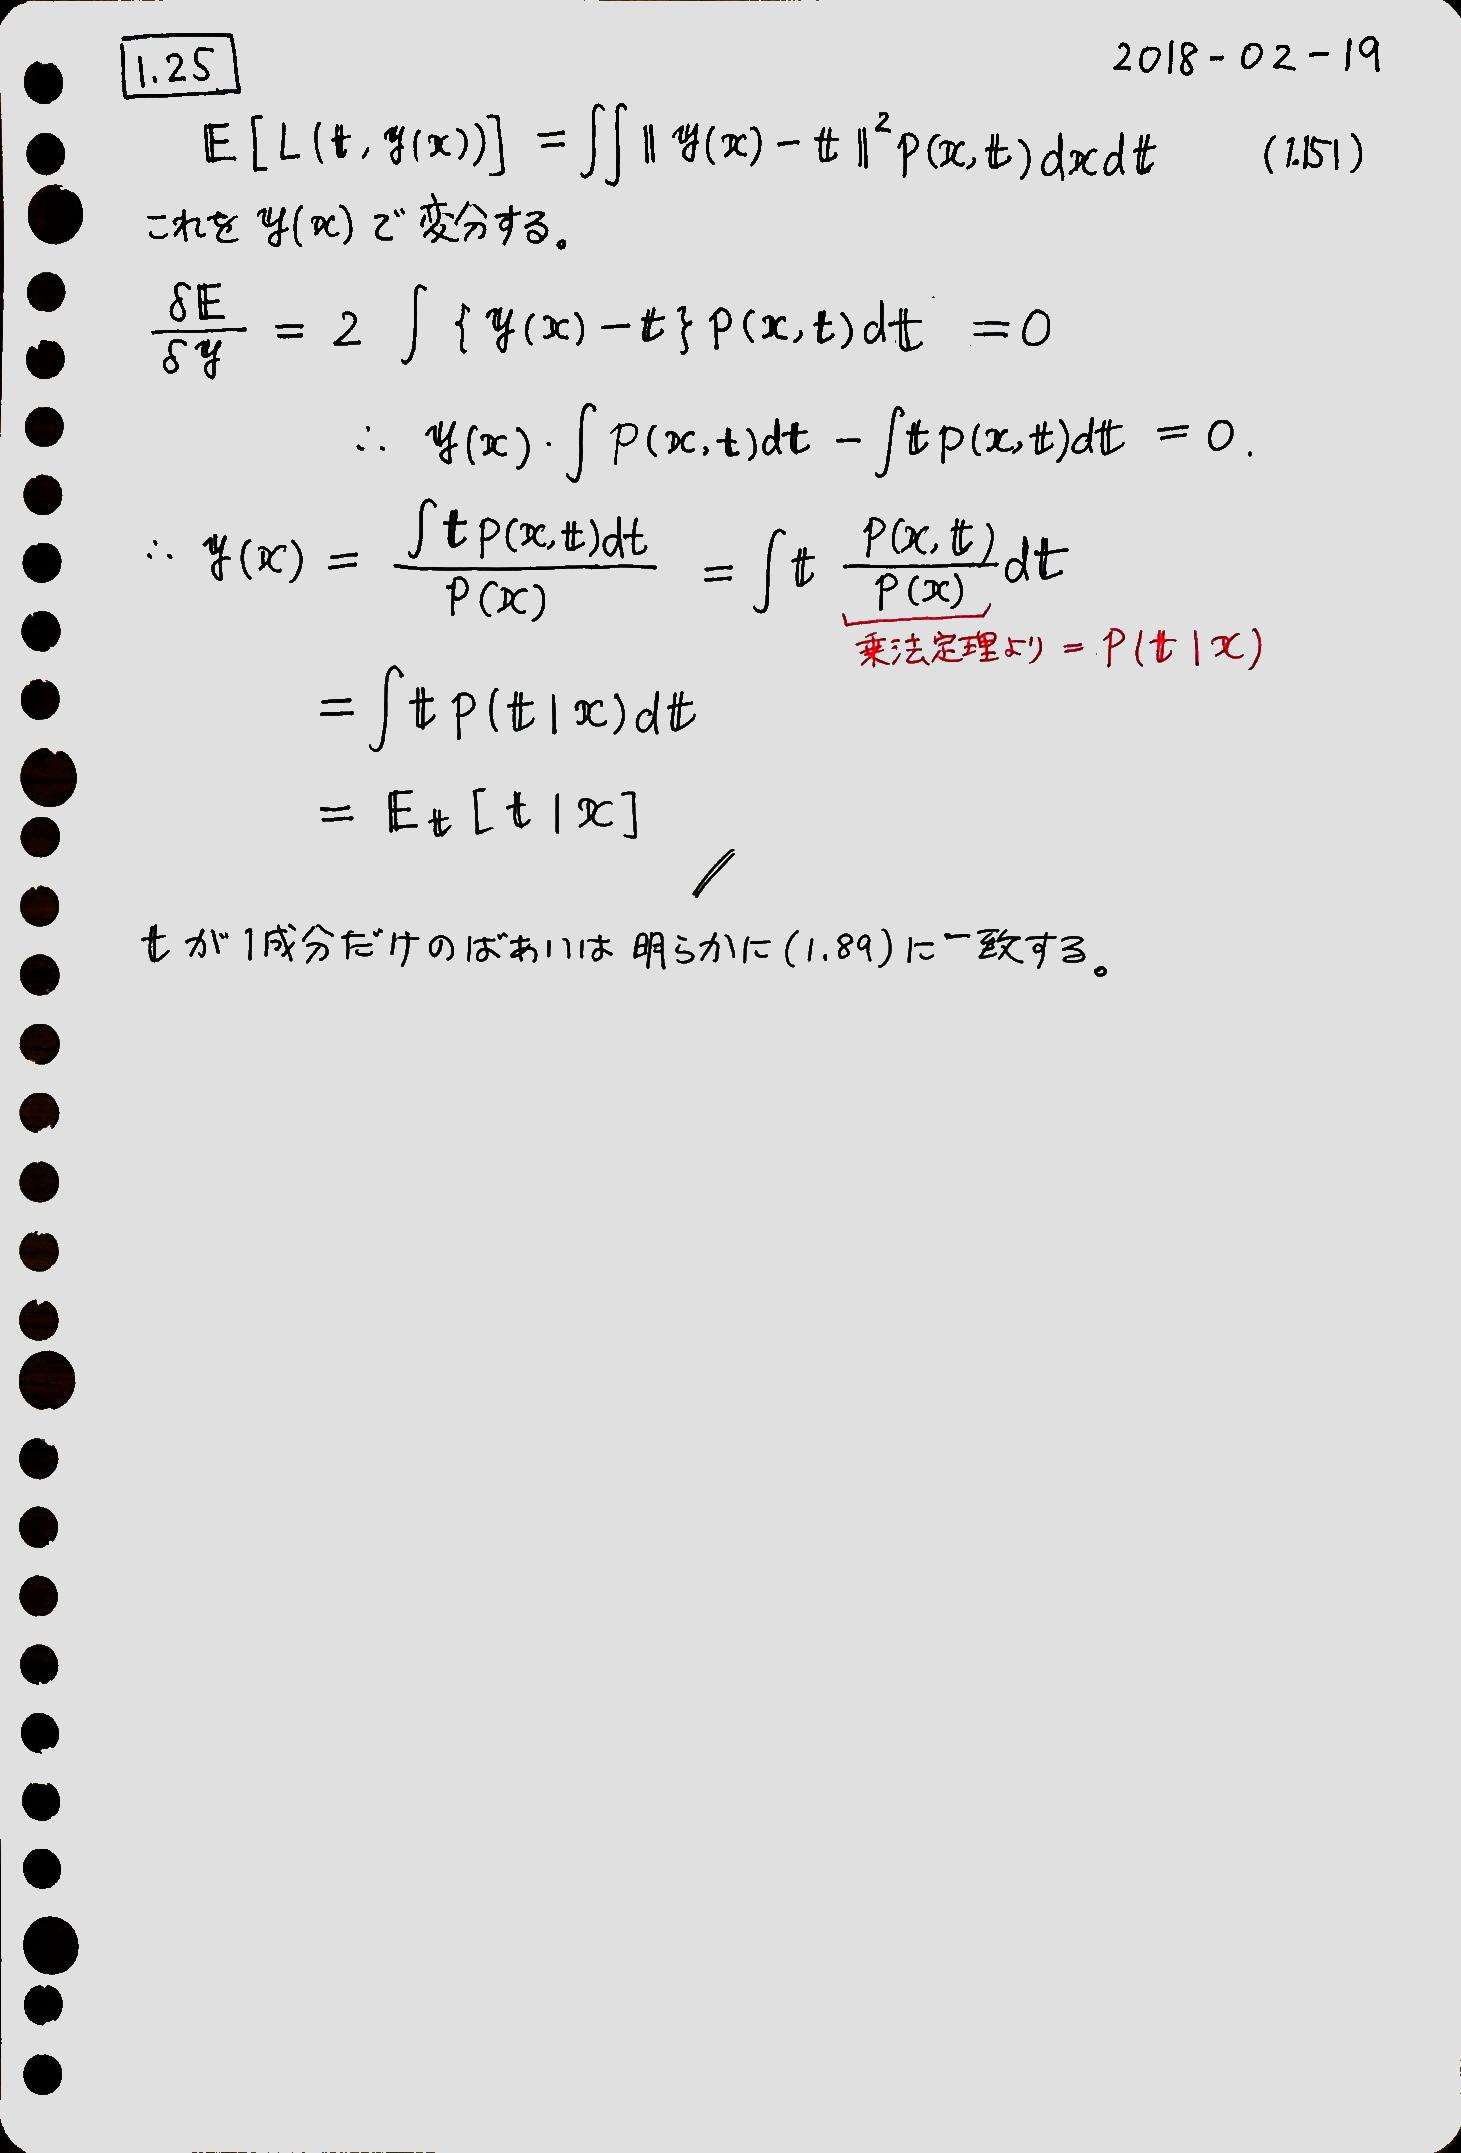 1.25 2018-02-19
𝔼[L(𝕥, 𝕪(𝕩))] = ∬‖𝕪(𝕩) − 𝕥‖² p(𝕩, 𝕥) d𝕩 d𝕥 (1.151)
これを 𝕪(𝕩) で変分する。
δ𝔼/δ𝕪 = 2 ∫ {𝕪(𝕩) − 𝕥} p(𝕩, 𝕥) d𝕥 = 0
∴ 𝕪(𝕩)・∫ p(𝕩, 𝕥) d𝕥 − ∫ 𝕥 p(𝕩, 𝕥) d𝕥 = 0.
∴ 𝕪(𝕩) = ∫ 𝕥 p(𝕩, 𝕥) d𝕥 / p(𝕩) = ∫ 𝕥 p(𝕩, 𝕥)/p(𝕩) d𝕥
乗法定理より = p(𝕥 | 𝕩)
= ∫ 𝕥 p(𝕥 | 𝕩) d𝕥
= 𝔼𝕥 [𝕥 | 𝕩]
//
𝕥 が 1成分だけのばあいは 明らかに (1.89) に一致する。